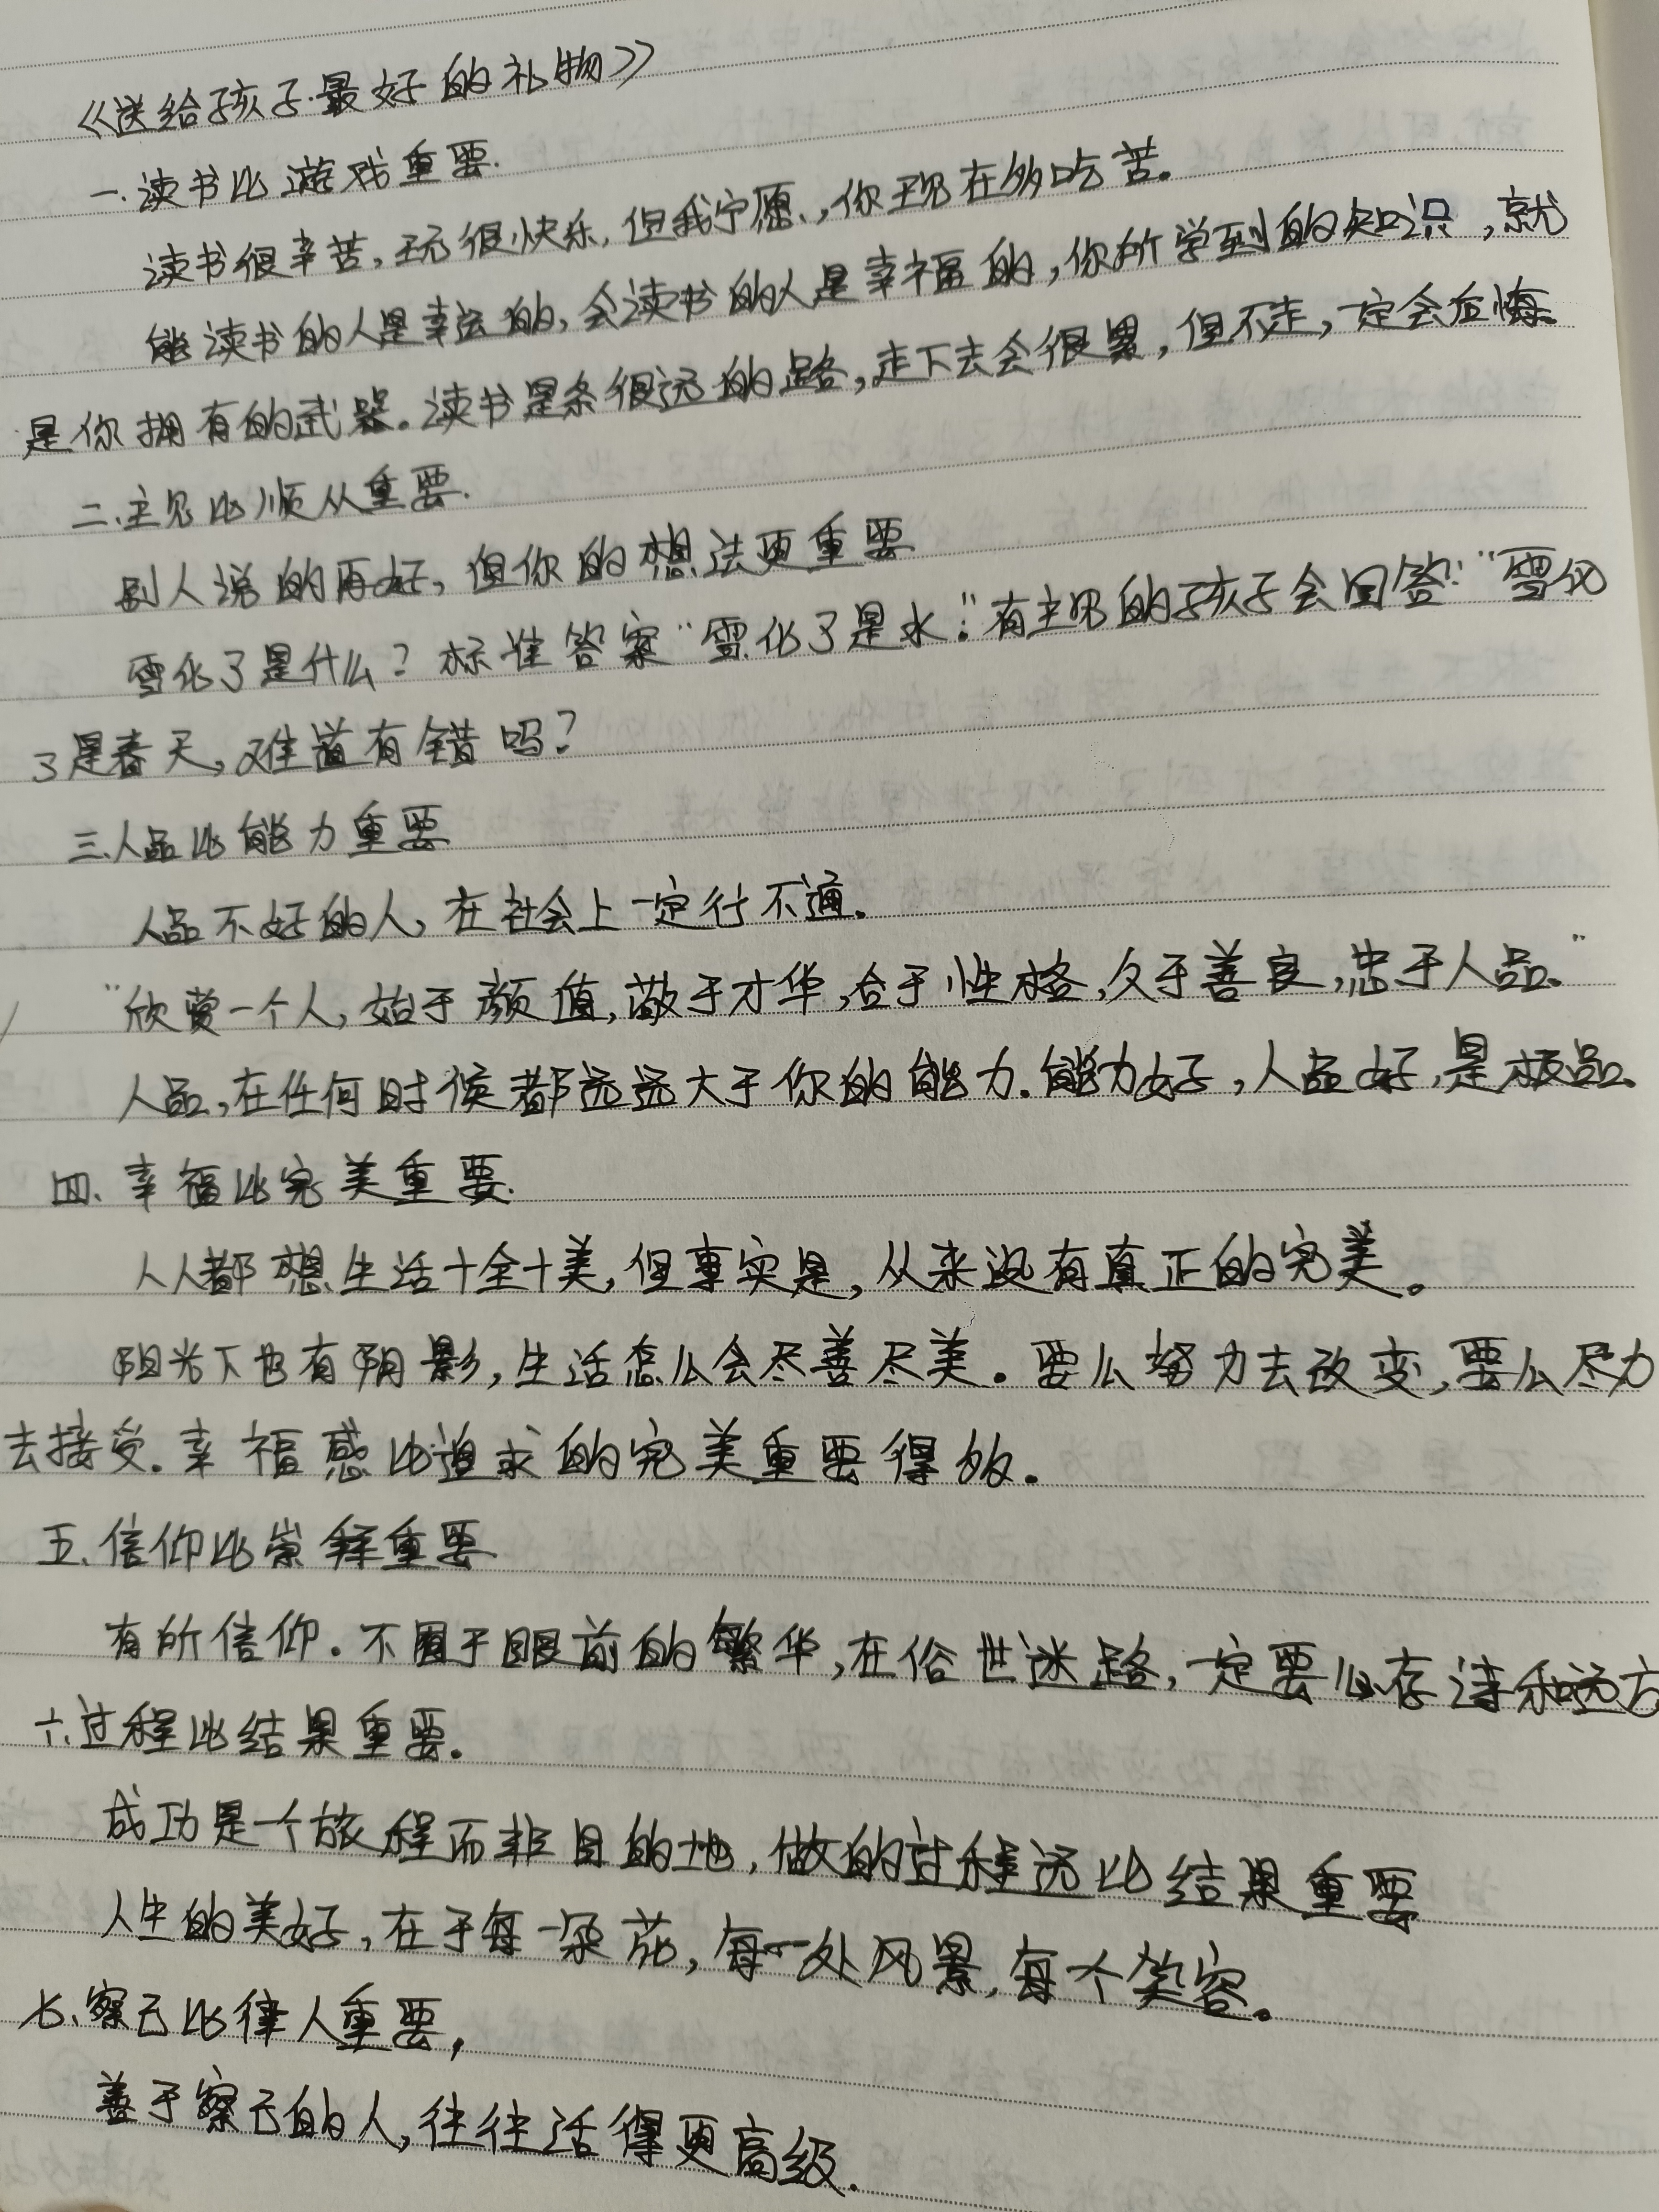 《送给孩子最好的礼物》
一.读书比游戏重要.
读书很辛苦,玩很快乐,但我宁愿,你现在多吃苦。
能读书的人是幸运的,会读书的人是幸福的,你所学到的知识,就
是你拥有的武器。读书是条很远的路,走下去会很累,但不走,一定会后悔。
二、主见比顺从重要.
别人说的再好,但你的想法更重要
雪化了是什么?标准答案“雪化了是水”。有主见的孩子会回答:“雪化
了是春天,难道有错吗?
三.人品比能力重要
人品不好的人,在社会上一定行不通.
“欣赏一个人,始于颜值,敬于才华,合于性格,久于善良,忠于人品。”
人品,在任何时候都远远大于你的能力.能力好,人品好,是极品。
四、幸福比完美重要.
人人都想生活十全十美,但事实是,从来没有真正的完美。
阳光下也有阴影,生活怎么会尽善尽美。要么努力去改变,要么尽力
去接受.幸福感比追求的完美重要得多。
五.信仰比崇拜重要
有所信仰.不囿于眼前的繁华,在俗世迷路,一定要心存诗和远方
六.过程比结果重要。
成功是一个旅程而非目的地,做的过程远比结果重要
人生的美好,在于每一朵花,每一处风景,每个笑容。
七、察己比律人重要,
善于察己的人,往往活得更高级.